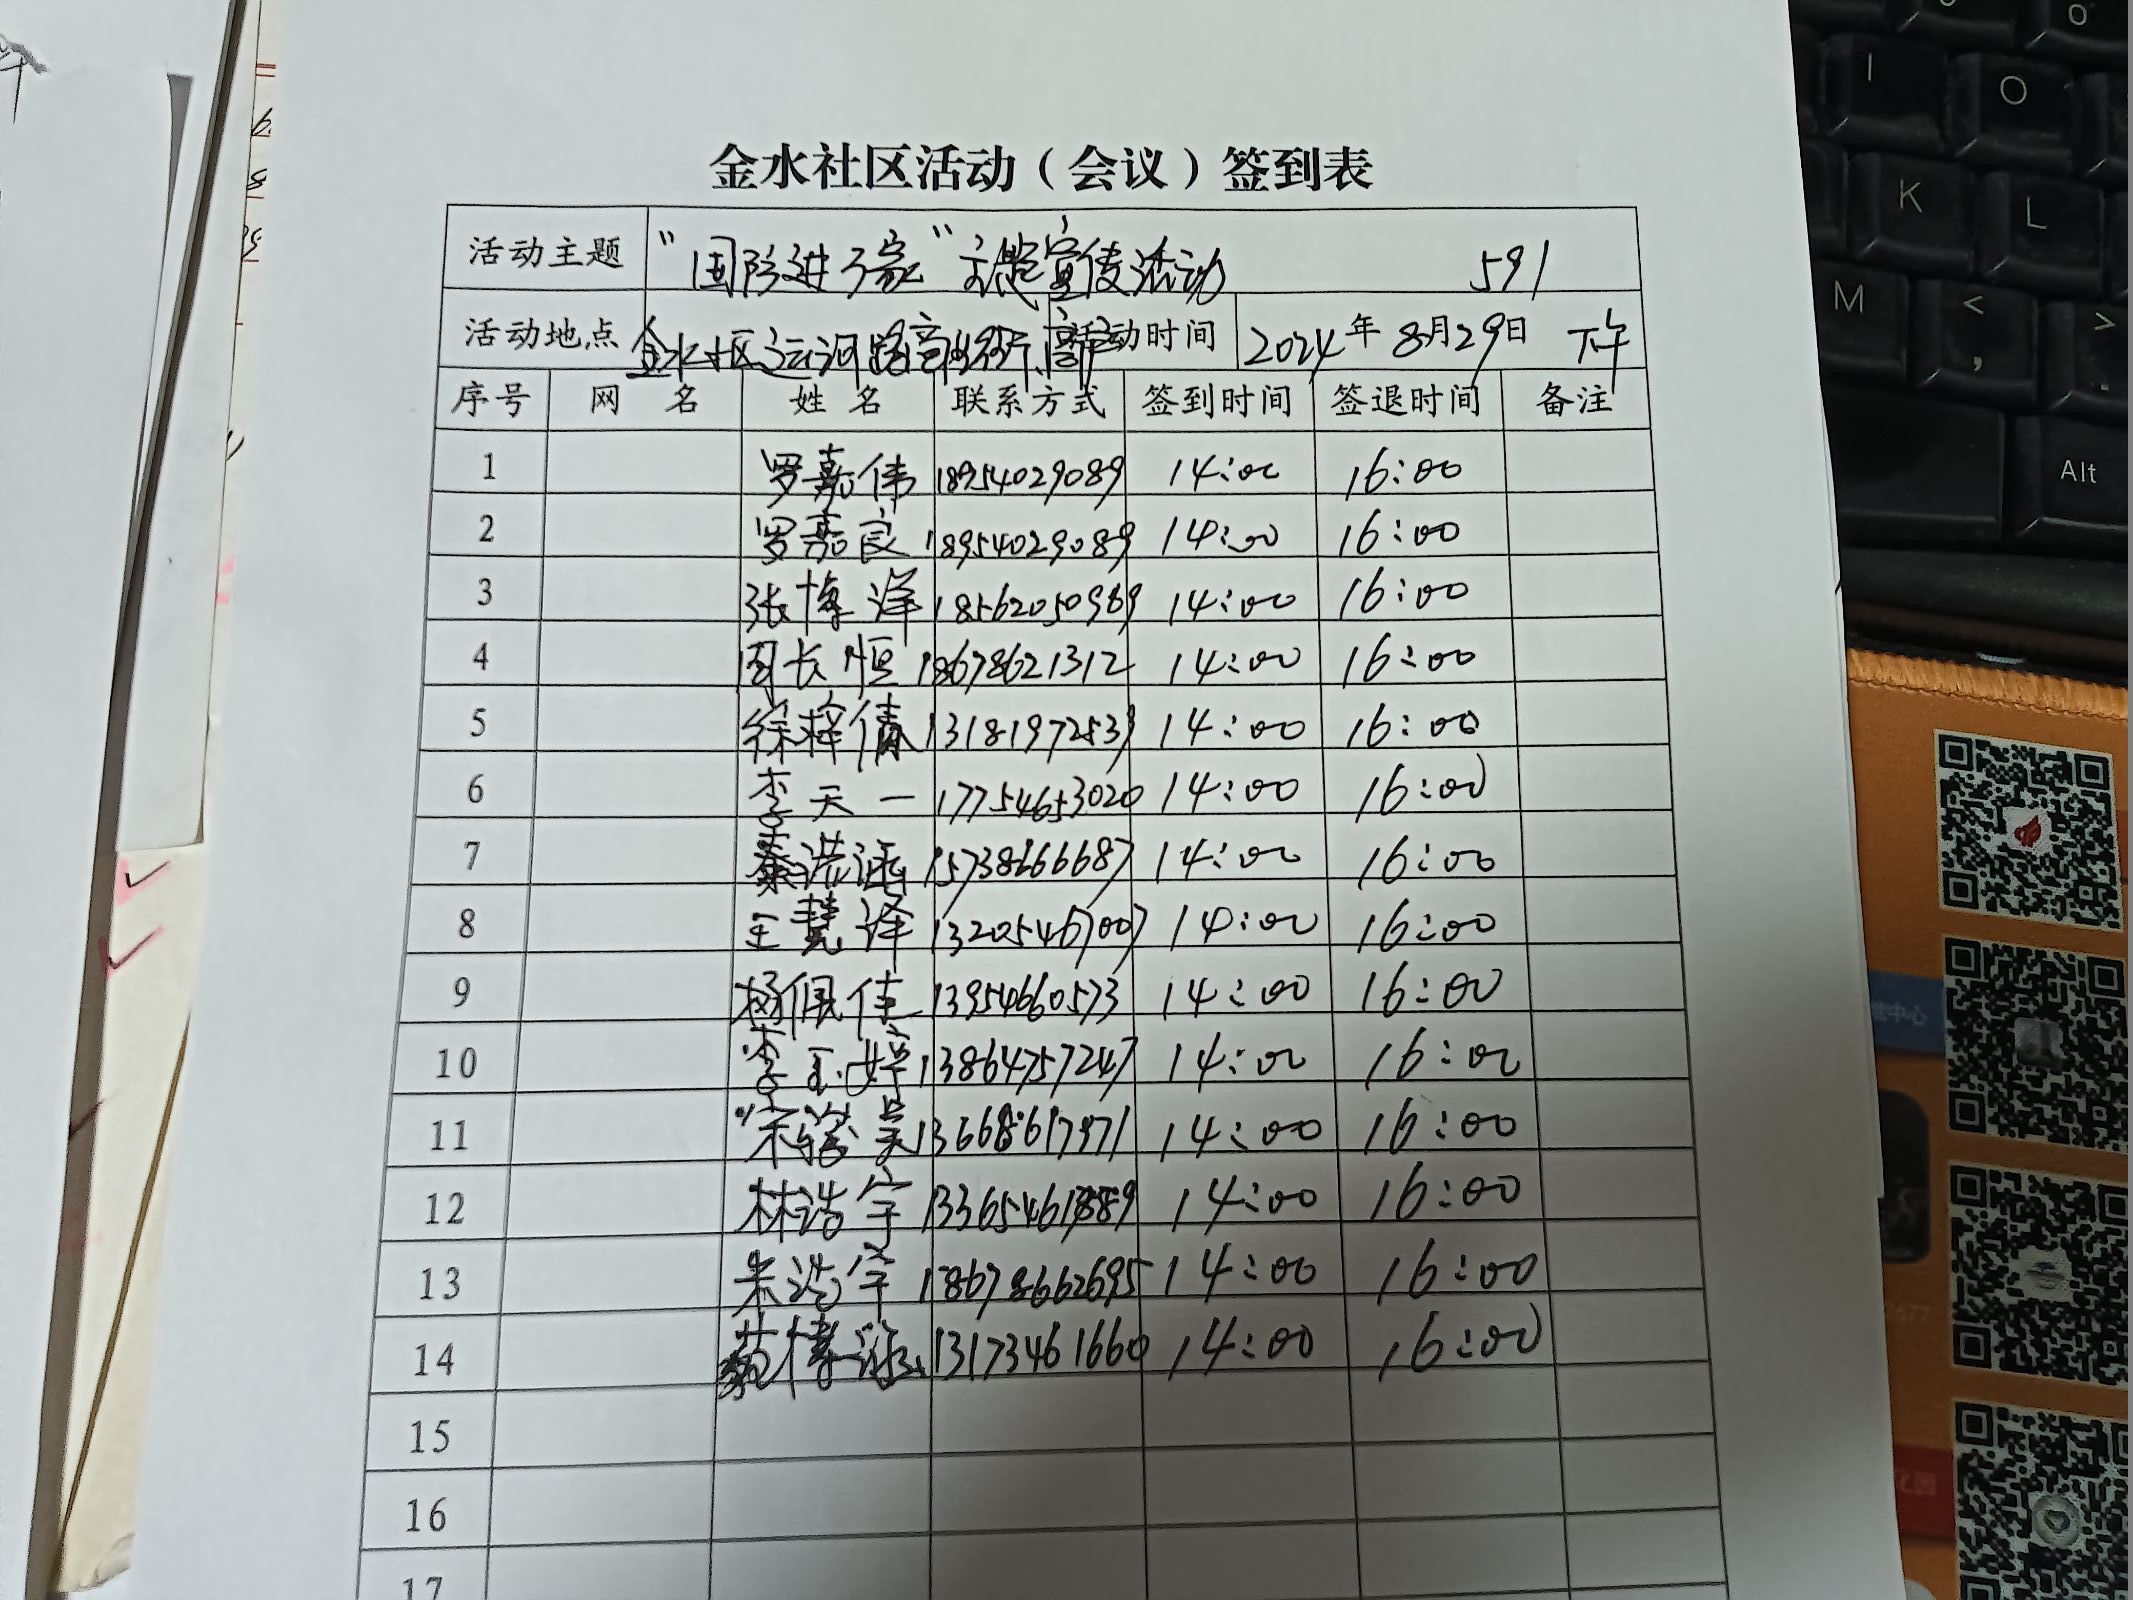 金水社区活动（会议）签到表
活动主题 “国防进万家”主题宣传活动 591
活动地点 金水社区运河路商业街 活动时间 2024年8月29日 下午
序号 网 名 姓 名 联系方式 签到时间 签退时间 备注
1 罗嘉伟 18954029089 14:00 16:00
2 罗嘉良 18954029089 14:00 16:00
3 张博洋 18562050989 14:00 16:00
4 周长恒 18678621312 14:00 16:00
5 徐梓倩 13181972539 14:00 16:00
6 李天一 17754653020 14:00 16:00
7 秦洪涵 15738666687 14:00 16:00
8 王慧泽 13205467007 14:00 16:00
9 杨佩佳 13954660573 14:00 16:00
10 李玉婷 13864757247 14:00 16:00
11 14:00 16:00
12 林浩宇 14:00 16:00
13 朱浩宇 18678662695 14:00 16:00
14 13173461660 14:00 16:00
15
16
17
I
O
K
L
M
<
,
>
Alt